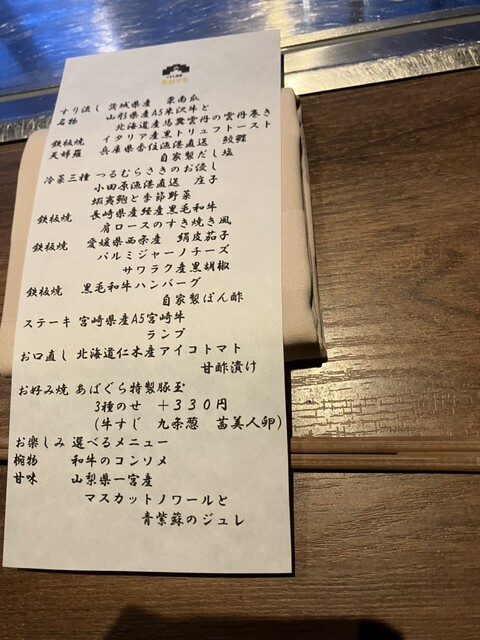 すり流し 茨城県産 栗南瓜
名物 山形県産A5米沢牛と
北海道産馬糞雲丹の雲丹巻き
鉄板焼 イタリア産黒トリュフトースト
天婦羅 兵庫県香住漁港直送 鮟鱇
自家製だし塩
冷菜三種 つるむらさきのお浸し
小田原漁港直送 庄子
蝦夷鮑と季節野菜
鉄板焼 長崎県産経産黒毛和牛
肩ロースのすき焼き風
鉄板焼 愛媛県西条産 絹皮茄子
パルミジャーノチーズ
サワラク産黒胡椒
鉄板焼 黒毛和牛ハンバーグ
自家製ぽん酢
ステーキ 宮崎県産A5宮崎牛
ランプ
お口直し 北海道仁木産アイコトマト
甘酢漬け
お好み焼 あばぐら特製豚玉
3種のせ +330円
(牛すじ 九条葱 茜美人卵)
お楽しみ 選べるメニュー
椀物 和牛のコンソメ
甘味 山梨県一宮産
マスカットノワールと
青紫蘇のジュレ